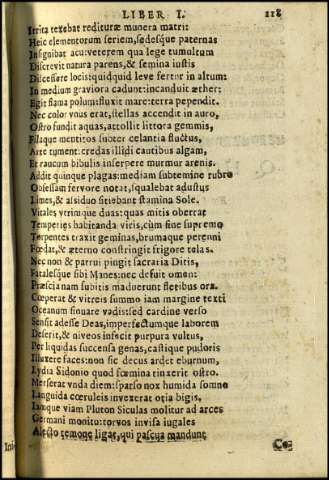 LIBER I. 118
Irrita texebat redituræ munera matri:
Heic elementorum seriem, sedesque paternas
Insignibat acu: veterem qua lege tumultum
Discrevit natura parens, & semina iustis
Discessere locis: quidquid leve fertur in altum:
In medium graviora cadunt: incanduit æther:
Egit flama polum: fluxit mare: terra pependit.
Nec color vnus erat, stellas accendit in auro,
Ostro fundit aquas, attollit littora gemmis,
Filaque mentitos iamiam celantia fluctus,
Arte tument: credas illidi cautibus algam,
Et raucum bibulis inserpere murmur arenis.
Addit quinque plagas: mediam subtemine rubro
Obsessam fervore notat, squalebat adustus
Limes, & assiduo sitiebat stamina Sole.
Vitales vtrimque duas: quas mitis oberrat
Temperies habitanda viris, cùm fine supremo
Torpentes traxit geminas, brumaque perenni
Fœdat, & æterno constringit frigore telas.
Nec non & patrui pingit sacraria Ditis,
Fatalesque sibi Manes: nec defuit omen:
Præscia nam subitis maduerunt fletibus ora.
Cœperat & vitreis summo iam margine texti
Oceanum sinuare vadis: sed cardine verso
Sensit adesse Deas, imperfectumque laborem
Deserit, & niveos infecit purpura vultus,
Per liquidas succensa genas, castique pudoris
Illuxere faces: non sic decus ardet eburnum,
Lydia Sidonio quod fœmina tinxerit ostro.
Merserat vnda diem: sparso nox humida somno
Languida cœruleis invexerat otia bigis,
Iamque viam Pluton Siculas molitur ad arces
Germani monitu: torvos invisa iugales
Alecto temone ligat, qui pascua mandunt
Co-